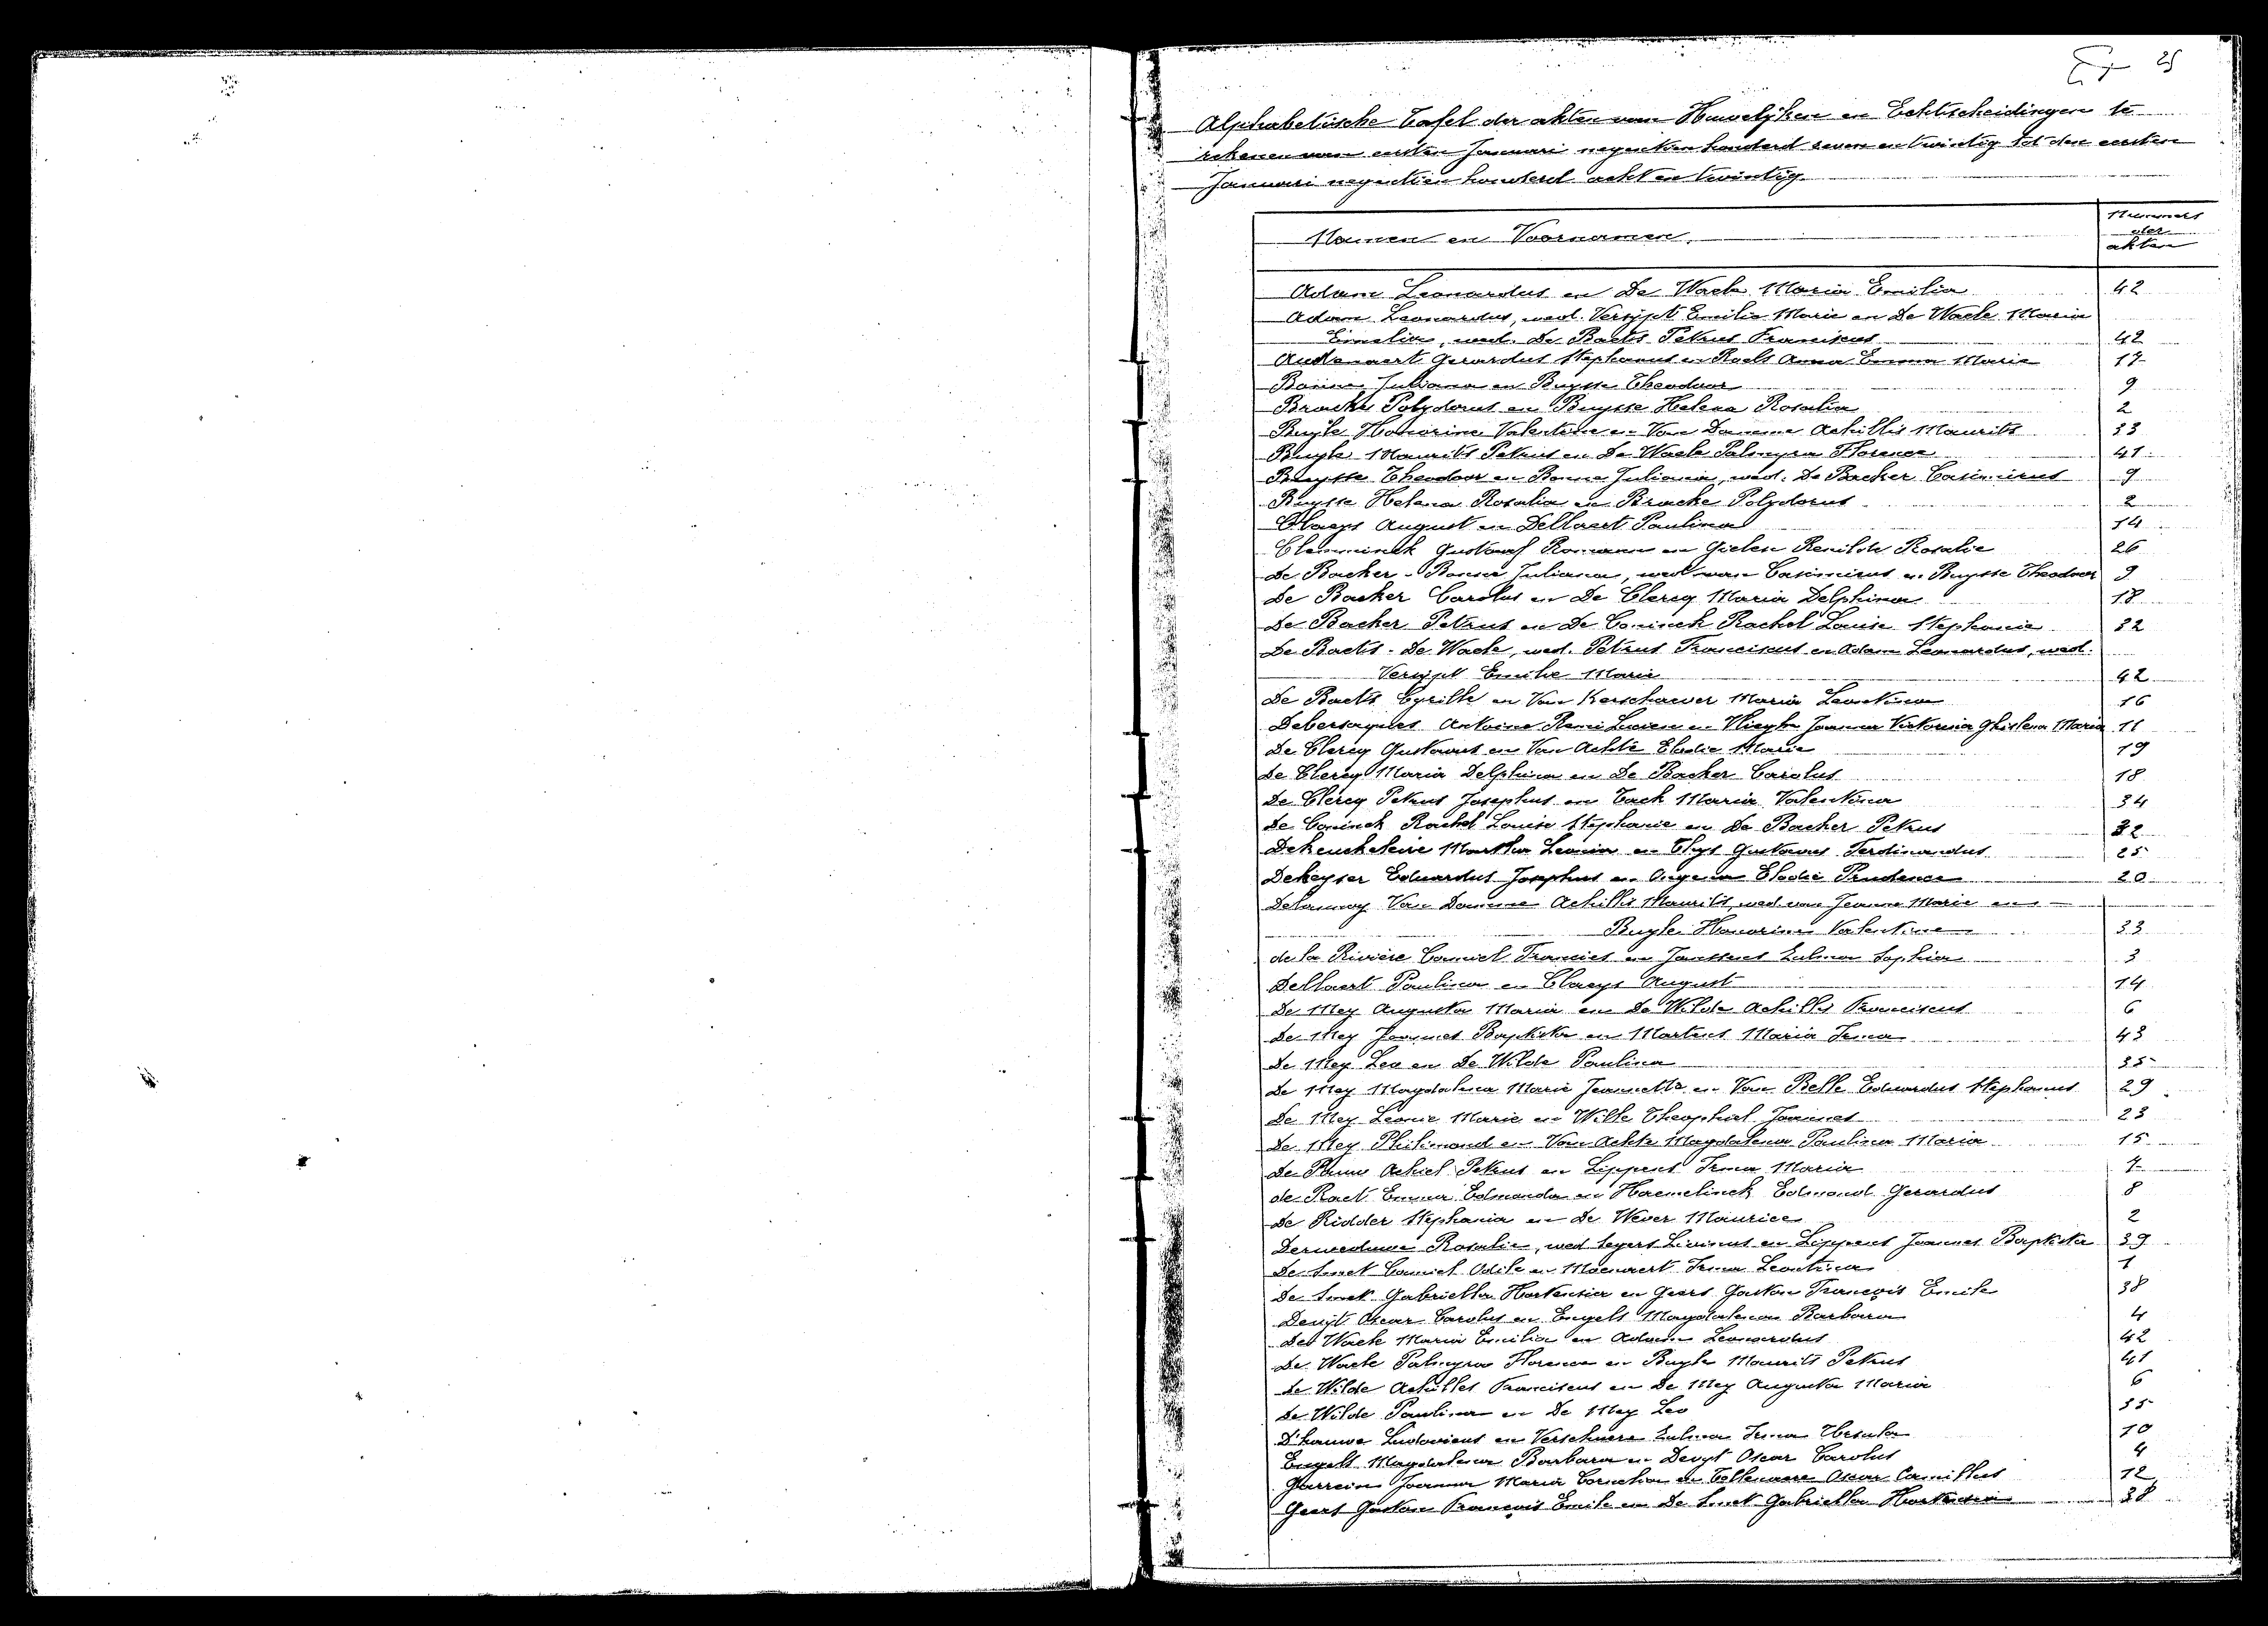 25
Alphabetische Tafel der akten van Huwelijken en Echtscheidingen te
rekenen van eersten Januari negentien honderd zeven en twintig tot den eersten
Januari negentien honderd acht en twintig
Namen en Voornamen. Nummers der akten
Adam Leonardus en De Waele Maria Emilia 42
Adam Leonardus, wed. Versijpt Emilie Marie en De Waele Maria
Emilia, wed. De Baets Petrus Franciscus 42
Audenaert Gerardus Stephanus en Roels Anna Emma Maria 17
Bonne Juliana en Buysse Theodoor 9
Bracke Polydorus en Buysse Helena Rosalia 2
Buyle Honorine Valentine en Van Damme Achilles Maurits 33
Buyle Maurits Petrus en De Waele Palmyra Florence 41
Buysse Theodoor en Bonne Juliana, wed. De Backer Casimirus 9
Buysse Helena Rosalia en Bracke Polydorus 2
Claeys August en Dellaert Paulina 14
Clemminck Gustaaf Romann en Gielen Renilde Rosalie 26
De Backer - Bonne Juliana, wed van Casimirus en Buysse Theodoor 9
De Backer Carolus en De Clercq Maria Delphina 18
De Backer Petrus en De Coninck Rachel Louise Stephanie 32
De Baets - De Waele, wed. Petrus Franciscus en Adam Leonardus, wed.
Versijpt Emilie Marie 42
De Baets Cyrille en Van Kerschaever Maria Leontina 16
Debersaques Antoine Remi Lieven en Vlieghe Joanna Victorina Ghislena Maria 11
De Clercq Gustavus en Van Achte Elodie Marie 19
De Clercq Maria Delphina en De Backer Carolus 18
De Clercq Petrus Josephus en Tack Maria Valentina 34
De Coninck Rachel Louise Stephanie en De Backer Petrus 32
Dekeukeleire Martha Leonia en Thys Gustavus Ferdinandus 25
Dekeyser Eduardus Josephus en Elodie Prudence 20
Delaunoy Van Damme Achilles Maurits, wed. van Jeanne Marie en
Buyle Honorine Valentine 33
de la Rivière Camiel Francies en Janssens Zulma Sophia 3
Dellaert Paulina en Claeys August 14
De Mey Augusta Maria en De Wilde Achilles Franciscus 6
De Mey Joannes Baptista en Martens Maria Irma 43
De Mey Leo en De Wilde Paulina 35
De Mey Magdalena Marie Jeannette en Van Belle Eduardus Stephanus 29
De Mey Leonie Marie en Wille Theophiel Joannes 23
De Mey Philimond en Van Achte Magdalena Paulina Maria 15
De Pauw Achiel Petrus en Lippens Irma Maria 7
de Raet Emma Edmonda en Haemelinck Edmond Gerardus 8
De Ridder Stephania en De Wever Maurice 2
Derweduwe Rosalie, wed Segers Livinus en Lippens Joannes Baptista 39
De Smet Camiel Odile en Maenaert Irma Leontina 1
De Smet Gabriella Hortensia en Geers Gaston François Emile 38
Deuijt Oscar Carolus en Engels Magdalena Barbara 4
De Waele Maria Emilia en Adam Leonardus 42
De Waele Palmyra Florence en Buyle Maurits Petrus 41
De Wilde Achilles Franciscus en De Mey Augusta Maria 6
De Wilde Paulina en De Mey Leo 35
D'hauwe Ludovicus en Verschuere Zulma Irma Ursula 10
Engels Magdalena Barbara en Deuyt Oscar Carolus 4
Garrein Joanna Maria Cornelia en Oscar Camillus 12
Geers Gaston François Emile en De Smet Gabriella Hortensia 38